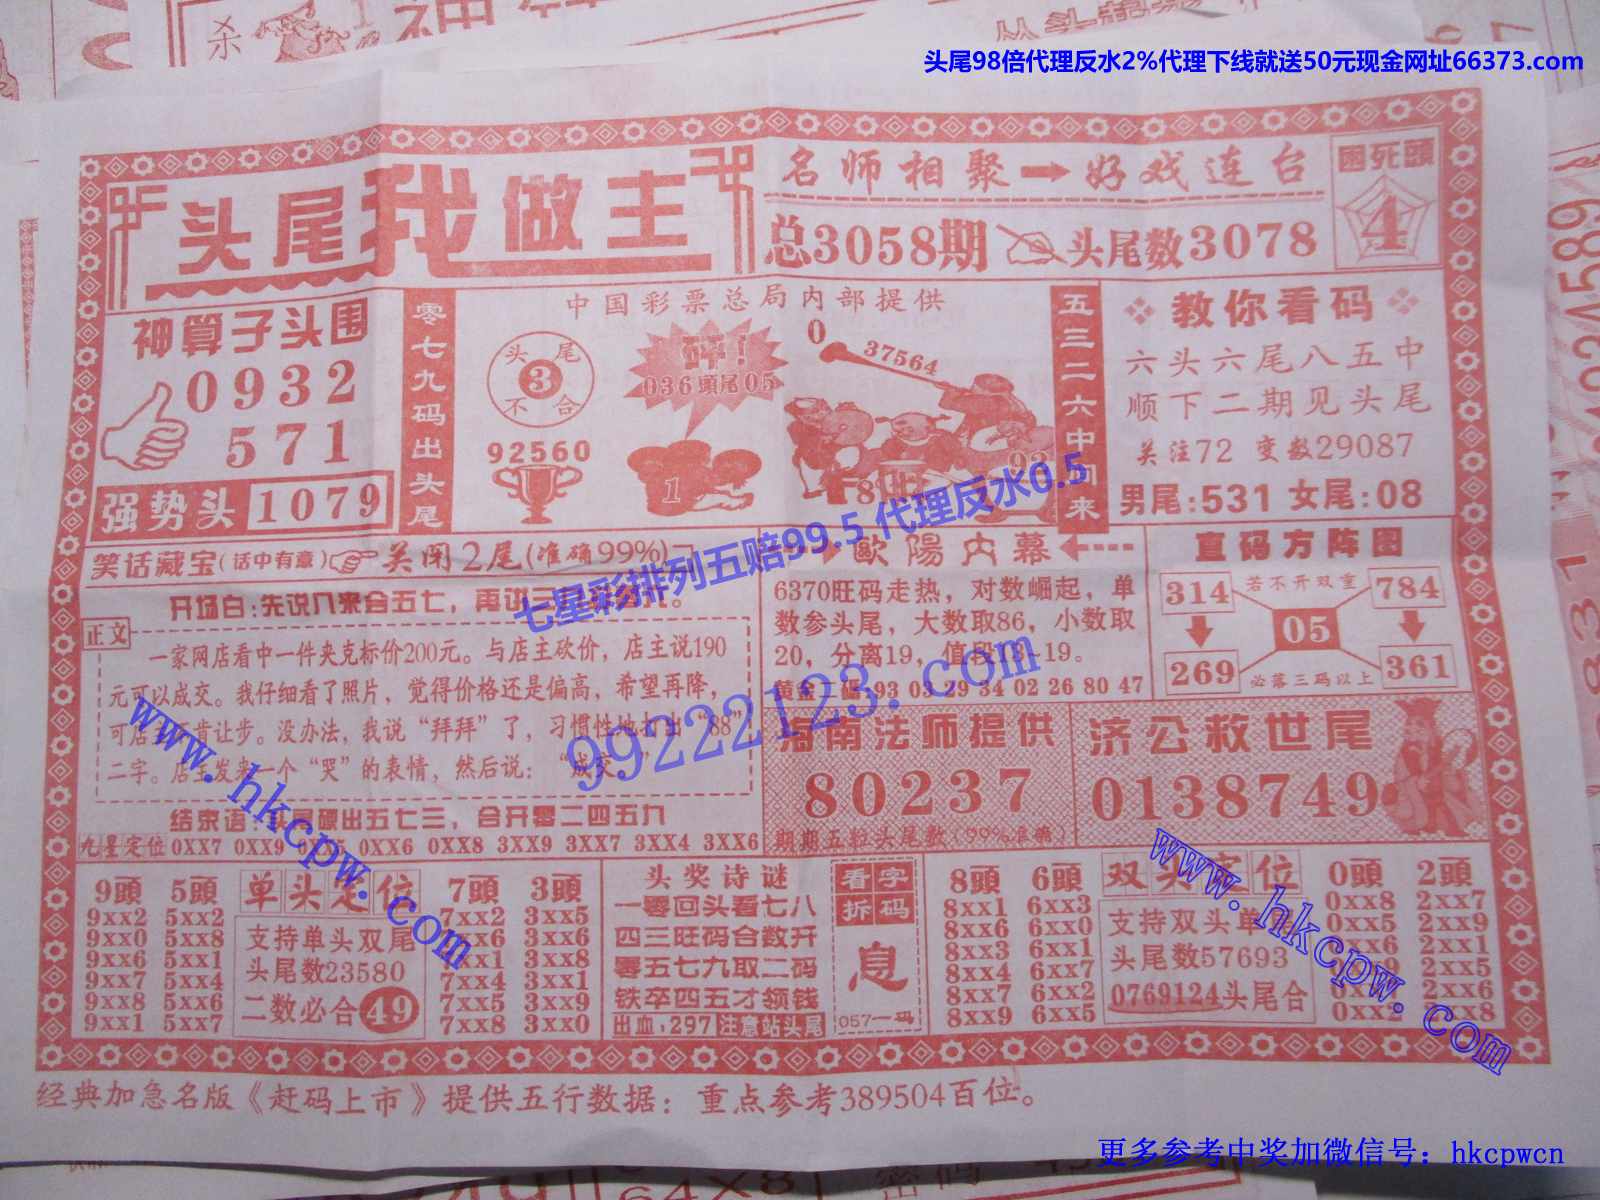 头尾98倍代理反水2%代理下线就送50元现金网址66373.com
杀
头尾我做主
名师相聚➡好戏连台
困死頭
4
总3058期
头尾数3078
神算子头围
0932
571
强势头 1079
零七九码出头尾
中国彩票总局内部提供
头尾
3
不合
92560
碎！
036頭尾05
1
0
37564
8
92
五三二六中间来
教你看码
六头六尾八五中
顺下二期见头尾
关注72 变数29087
男尾:531 女尾:08
笑话藏宝(话中有意)
关闭2尾(准确99%)
七星彩排列五赔99.5 代理反水0.5
开场白:先说八来合五七，再
正文
一家网店看中一件夹克标价200元。与店主砍价，店主说190
元可以成交。我仔细看了照片，觉得价格还是偏高，希望再降，
可店 肯让步。没办法，我说“拜拜”了，习惯性地打出“88”
二字。店主发来一个“哭”的表情，然后说：“成交
结束语: 出五七三，合开零二四五九
九星定位 0XX7 0XX9 0XX6 0XX8 3XX9 3XX7 3XX4 3XX6
歐陽内幕
6370旺码走热，对数崛起，单
数参头尾，大数取86，小数取
20，分离19，值段13-19。
黄金二 93 03 29 34 02 26 80 47
99222123.com
www.hkcpw.com
直码方阵图
314 若不开双重 784
05
269 必落三码以上 361
海南法师提供
80237
期期五粒头尾数(99%准确)
济公救世尾
0138749
9頭 5頭
9xx2 5xx2
9xx0 5xx8
9xx6 5xx1
9xx7 5xx4
9xx8 5xx6
9xx1 5xx7
单头定位
支持单头双尾
头尾数23580
二数必合49
7頭 3頭
7xx2 3xx5
xx6 3xx6
xx1 3xx8
7xx4 3xx1
7xx5 3xx9
7xx8 3xx0
头奖诗谜
一零回头看七八
四三旺码合数开
零五七九取二码
铁卒四五才领钱
出血:297 注意站头尾
看字
拆码
息
057一码
8頭 6頭
8xx1 6xx3
8xx6 6xx0
8xx3 6xx1
8xx4 6xx7
8xx7 6xx2
8xx9 6xx5
双头定位
支持双头单
头尾数57693
0769124头尾合
0頭 2頭
0xx8 2xx7
0xx5 2xx9
xx6 2xx1
2xx5
2xx6
0xx2 xx8
www.hkcpw.com
经典加急名版《赶码上市》提供五行数据：重点参考389504百位。
更多参考中奖加微信号：hkcpwcn